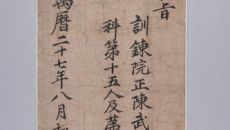 旨
訓鍊院正陳武
科第十五人及第
萬曆二十七年八月